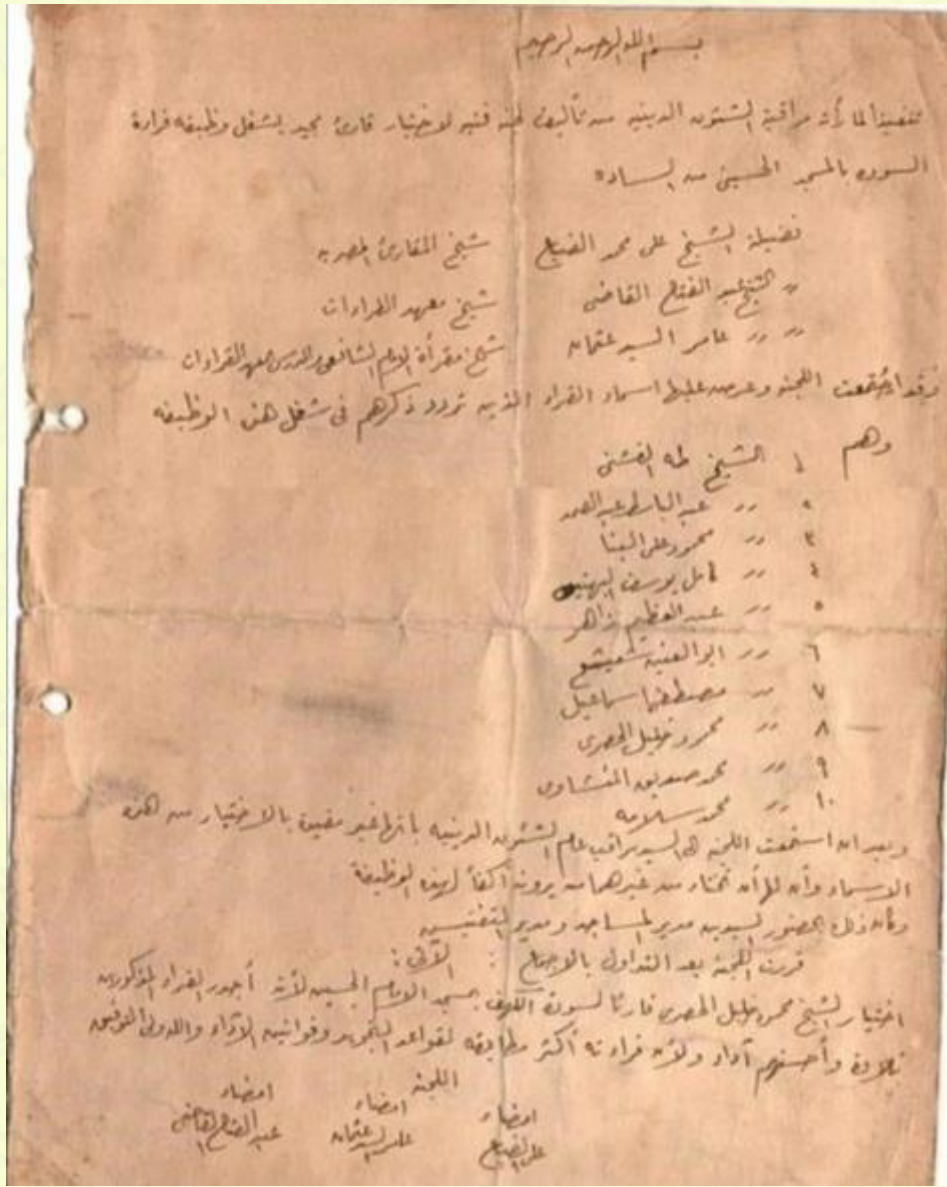 بسم الله الرحمن الرحيم
تنفيذا لما رأته مراقبة الشئون الدينية من تأليف لجنة فنية لاختيار قارئ مجيد يشغل وظيفة قراءة
السورة بالمسجد الحسينى من السادة
فضيلة الشيخ على محمد الضباع شيخ المقارئ المصرية
〃 الشيخ عبد الفتاح القاضى شيخ معهد القراءات
〃 〃 عامر السيد عثمان شيخ مقرأة الإمام الشافعى والمدرس بمعهد القراءات
وقد اجتمعت اللجنة وعرض عليها اسماء القراء الذين تردد ذكرهم فى شغل هذه الوظيفة
وهم ١ الشيخ طه الفشنى
٢ 〃 عبد الباسط عبد الصمد
٣ 〃 محمود على البنا
٤ 〃 كامل يوسف البهتيمى
٥ 〃 عبد العظيم زاهر
٦ 〃 ابو العينين شعيشع
٧ 〃 مصطفى اسماعيل
٨ 〃 محمود خليل الحصرى
٩ 〃 محمد صديق المنشاوى
١٠ 〃 محمد سلامه
وبعد ان استمعت اللجنة الى السيد مراقب عام الشئون الدينية بانها غير مقيدة بالاختيار من هذه
الاسماء وأن لها أن تختار من غيرهم من يرونه أكفأ لهذه الوظيفة
وكان ذلك بحضور السيدين مدير المساجد ومدير التفتيش
قررت اللجنة بعد التداول بالاجماع : الآتى :
اختيار الشيخ محمود خليل الحصرى قارئا لسورة الكهف بمسجد الامام الحسين لأنه أجدر القراء المذكورين
تلاوة وأحسنهم أداء ولأن قراءته أكثر مطابقة لقواعد التجويد وقوانين الأداء والله ولى التوفيق
اللجنة
امضاء امضاء امضاء
على الضباع عامر السيد عثمان عبد الفتاح القاضى